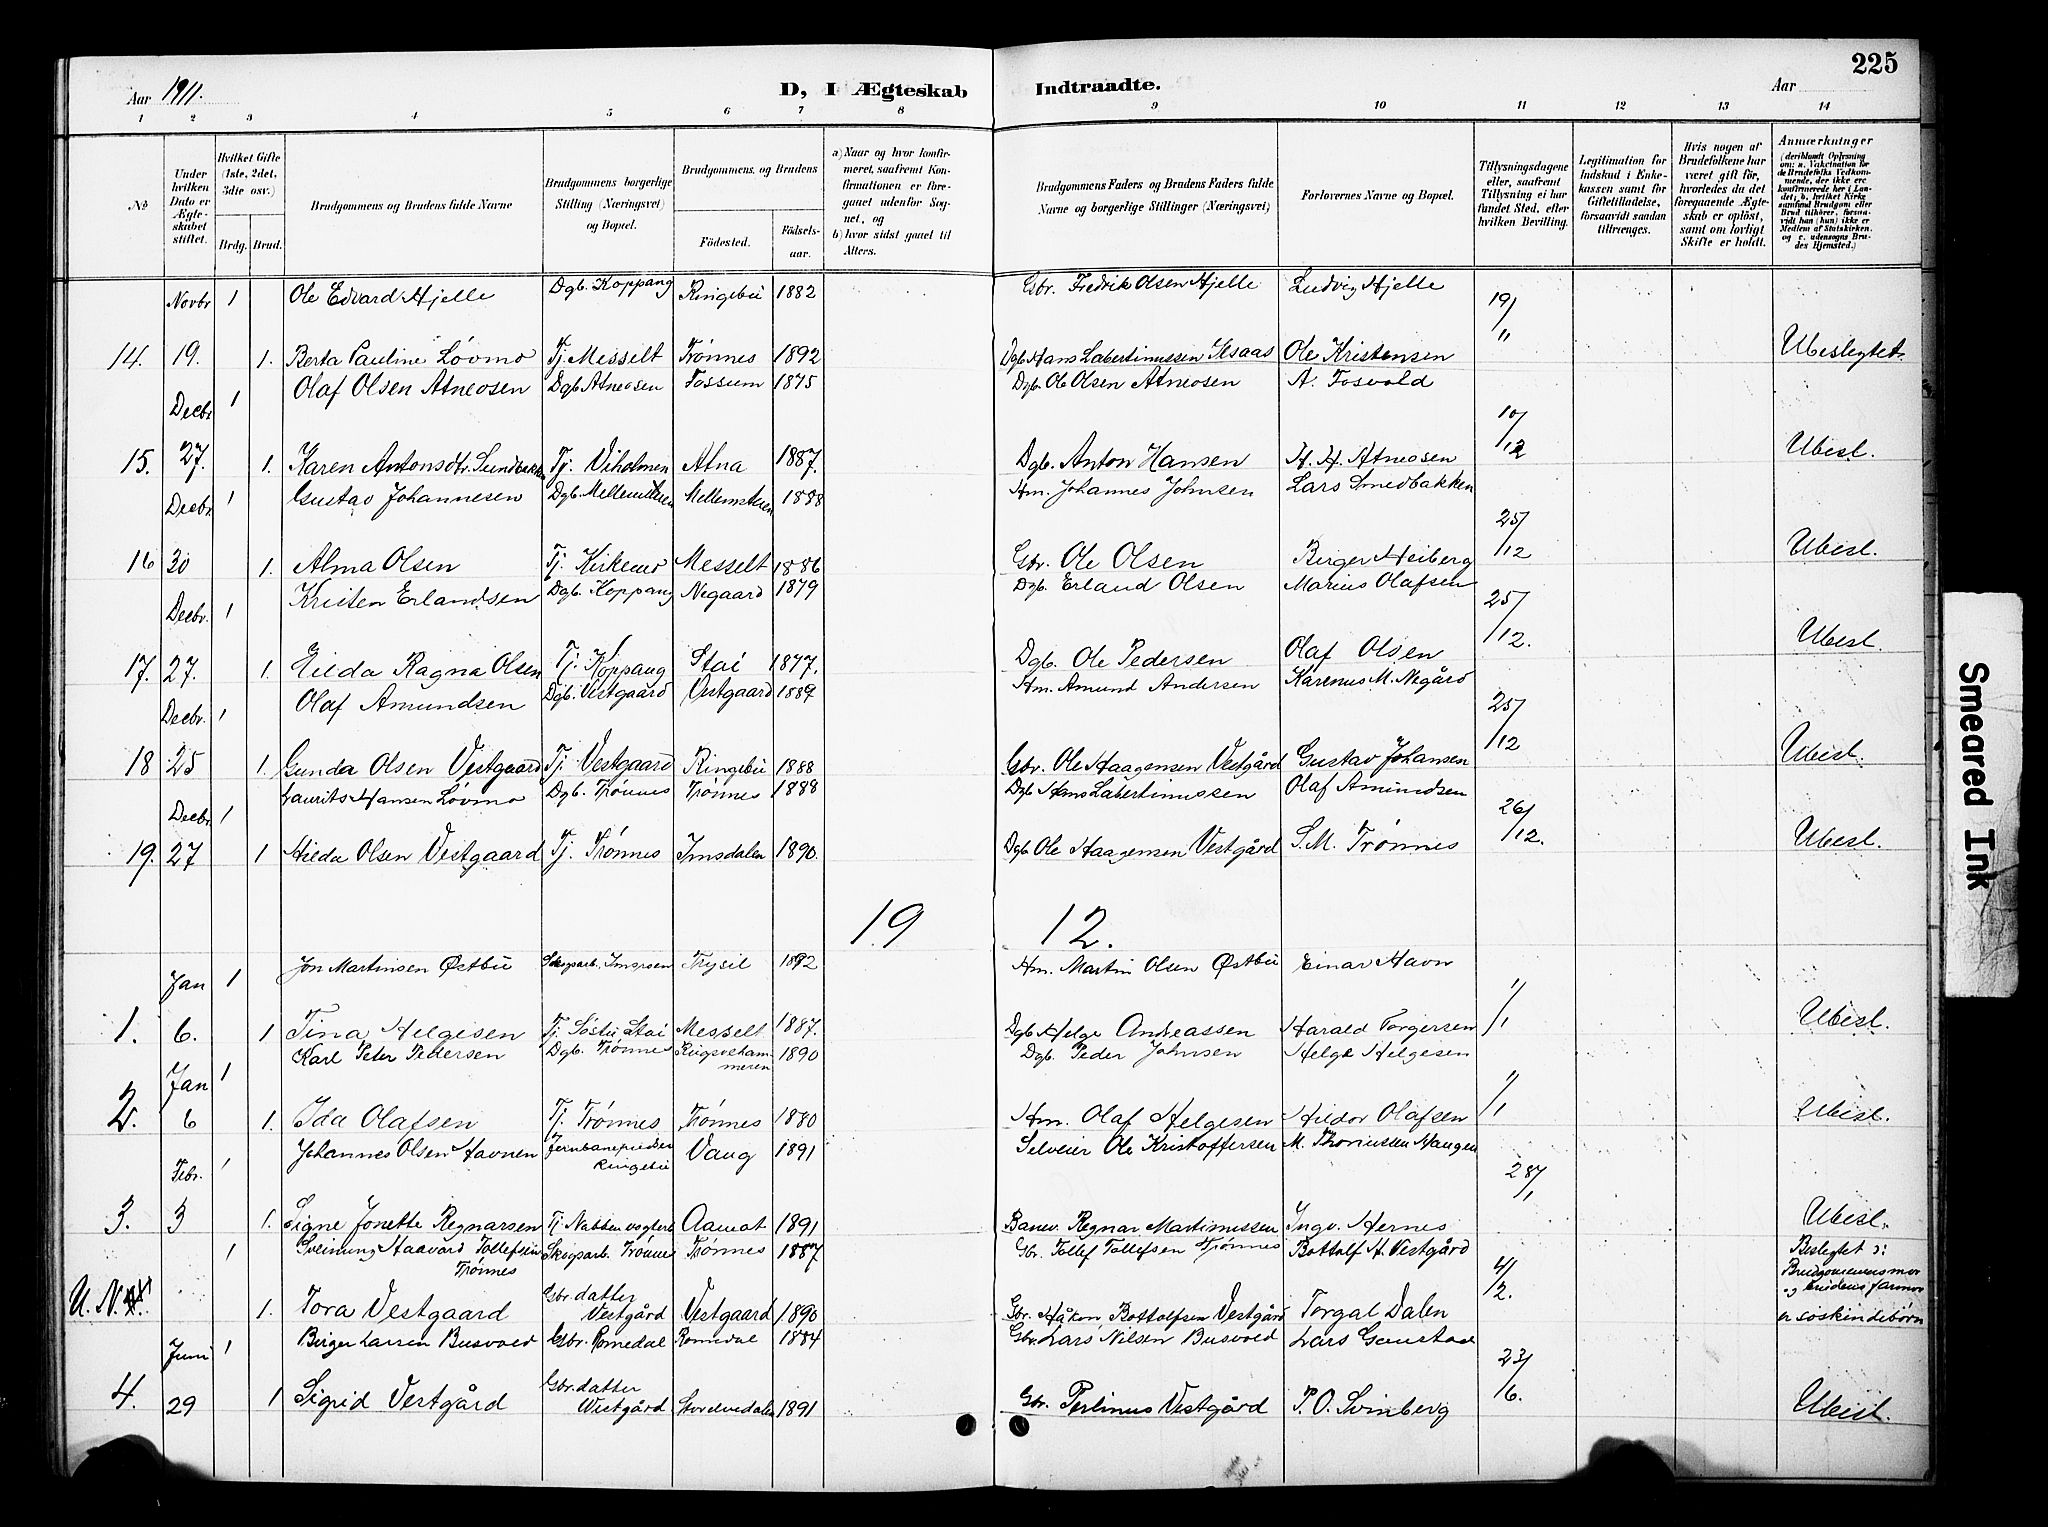 225
Aar 1911.
D, I Ægteskab Indtraadte.
Aar
1 2 3 4 5 6 7 8 9 10 11 12 13 14
No
Under hvilken Dato er Ægteskabet stiftet.
Hvilket Gifte (1ste, 2det, 3die osv.)
Brdg. Brud.
Brudgommens og Brudens fulde Navne
Brudgommens borgerlige Stilling (Næringsvei) og Bopæl.
Brudgommens og Brudens
Födested. Födselsaar.
a) Naar og hvor konfirmeret, saafremt Konfirmationen er foregaaet udenfor Sognet, og
b) hvor sidst gaaet til Alters.
Brudgommens Faders og Brudens Faders fulde Navne og borgerlige Stillinger (Næringsvei)
Forlovernes Navne og Bopæl.
Tillysningsdagene eller, saafremt Tillysning ei har fundet Sted, efter hvilken Bevilling.
Legitimation for Indskud i Enkekassen samt for Giftetilladelse, forsaavidt saadan tiltrænges.
Hvis nogen af Brudefolkene har været gift för, hvorledes da det foregaaende Ægteskab er oplöst, samt om lovligt Skifte er holdt.
Anmærkninger
(deriblandt Oplysning om: a. Vakcination for de Brudefolks Vedkommende, der ikke ere konfirmerede her i Landet; b. hvilket Kirkesamfund Brudgom eller Brud tilhörer, forsaavidt han (hun) ikke er Medlem af Statskirken, og c. udensogns Brudes Hjemsted.)
Novbr 1 Ole Edvard Hjelle Dgb. Koppang Ringebu 1882 Gbr. Fredrik Olsen Hjelle Ludvig Hjelle 19/11
14. 19. 1. Berta Pauline Løvmo Tj. Messelt Trønnes 1892 Dgb Hans Labertinussen Ilsaas Ole Kristensen Ubeslegtet.
Decbr 1 Olaf Olsen Atneosen Dgb. Atneosen Fossum 1875 Dgb. Ole Olsen Atneosen A. Fosvold 10/12
15. 27. 1. Karen Antonsdtr. Sundbakken Tj. Viholmen Atna 1887. Dgb. Anton Hansen H. H. Atneosen Ubesl.
Decbr 1 Gustav Johannesen Dgb. Mellemilsen 1888 Hm. Johannes Johnsen Lars Smedbakken 25/12
16 30 1. Alma Olsen Tj. Kirkemo Messelt 1886 Gbr. Ole Olsen Birger Heiberg Ubesl.
Decbr. 1 Kristen Erlandsen Dgb. Koppang Negaard 1879 Dgb. Erland Olsen Marius Olafsen 25/12.
17. 27. 1. Hilda Ragna Olsen Tj. Koppang Stai 1877. Dgb. Ole Pedersen Olaf Olsen Ubesl.
Decbr. 1 Olaf Amundsen Dgb. Vestgaard Vestgaard 1889 Hm. Amund Andersen Karenus M. Negård 25/12
18 25 1. Gunda Olsen Vestgaard Tj. Vestgaard Ringebu 1888 Gbr. Ole Haagensen Vestgård Gustav Johansen Ubesl.
Decbr 1 Laurits Hansen Løvmo Dgb. Trønnes Trønnes 1888 Dgb Hans Labertinussen Olaf Amundsen 26/12.
19. 27 1 Hilda Olsen Vestgaard Tj. Trønnes Imsdalen 1890. Dgb. Ole Haagensen Vestgård S. M. Trønnes Ubesl.
19 12.
Jan 1 Jon Martinsen Østbu Skogsarb. Imsroen Trysil 1892 Hm. Martin Olsen Østbu Einar Havn 1/1
1. 6. 1 Tina Helgesen Tj. Søstu Stai Messelt 1887. Dgb Helge Andreassen Harald Torgersen Ubesl.
Jan 1 Karl Peter Pedersen Dgb. Trønnes Ringsvehammeren 1890 Dgb. Peder Johnsen Helge Helgesen 1/1
2. 6 1. Ida Olafsen Tj. Trønnes Trønnes 1880 Hm. Olaf Helgesen Hildor Olafsen Ubesl.
Febr. 1 Johannes Olsen Havnen Ringebu Vang 1891 Selveier Ole Kristoffersen M. Thoriussen Haugen 28/1
3. 3 1. Signe Jonette Regnarsen Tj. Nabben vogterb. Aamot 1891 Banev. Regnar Martinussen Ingv. Hernes Ubesl.
1 Sveinung Haavard Tollefsen Trønnes Skogsarb. Trønnes Trønnes 1887 Gbr. Tollef Tollefsen Trønnes Bottolf H. Vestgård 4/2.
U. N. 1. Tora Vestgaard Gbr. datter Vestgård Vestgaard 1890 Gbr. Håkon Bottolfsen Vestgård Torgal Dalen
Beslegtet ɔ: Brudgommens mor og brudens farmor er søskendebørn
Juni 1 Birger Larsen Busvold Gbr. Romedal Romedal 1884 Gbr. Lars Nilsen Busvold Lars Gaustad 23/6.
4. 29 1 Sigrid Vestgård Gbr. datter Vestgård Storelvedalen 1891 Gbr. Perlinus Vestgård P. O. Svinberg Ubesl.
Smeared Ink